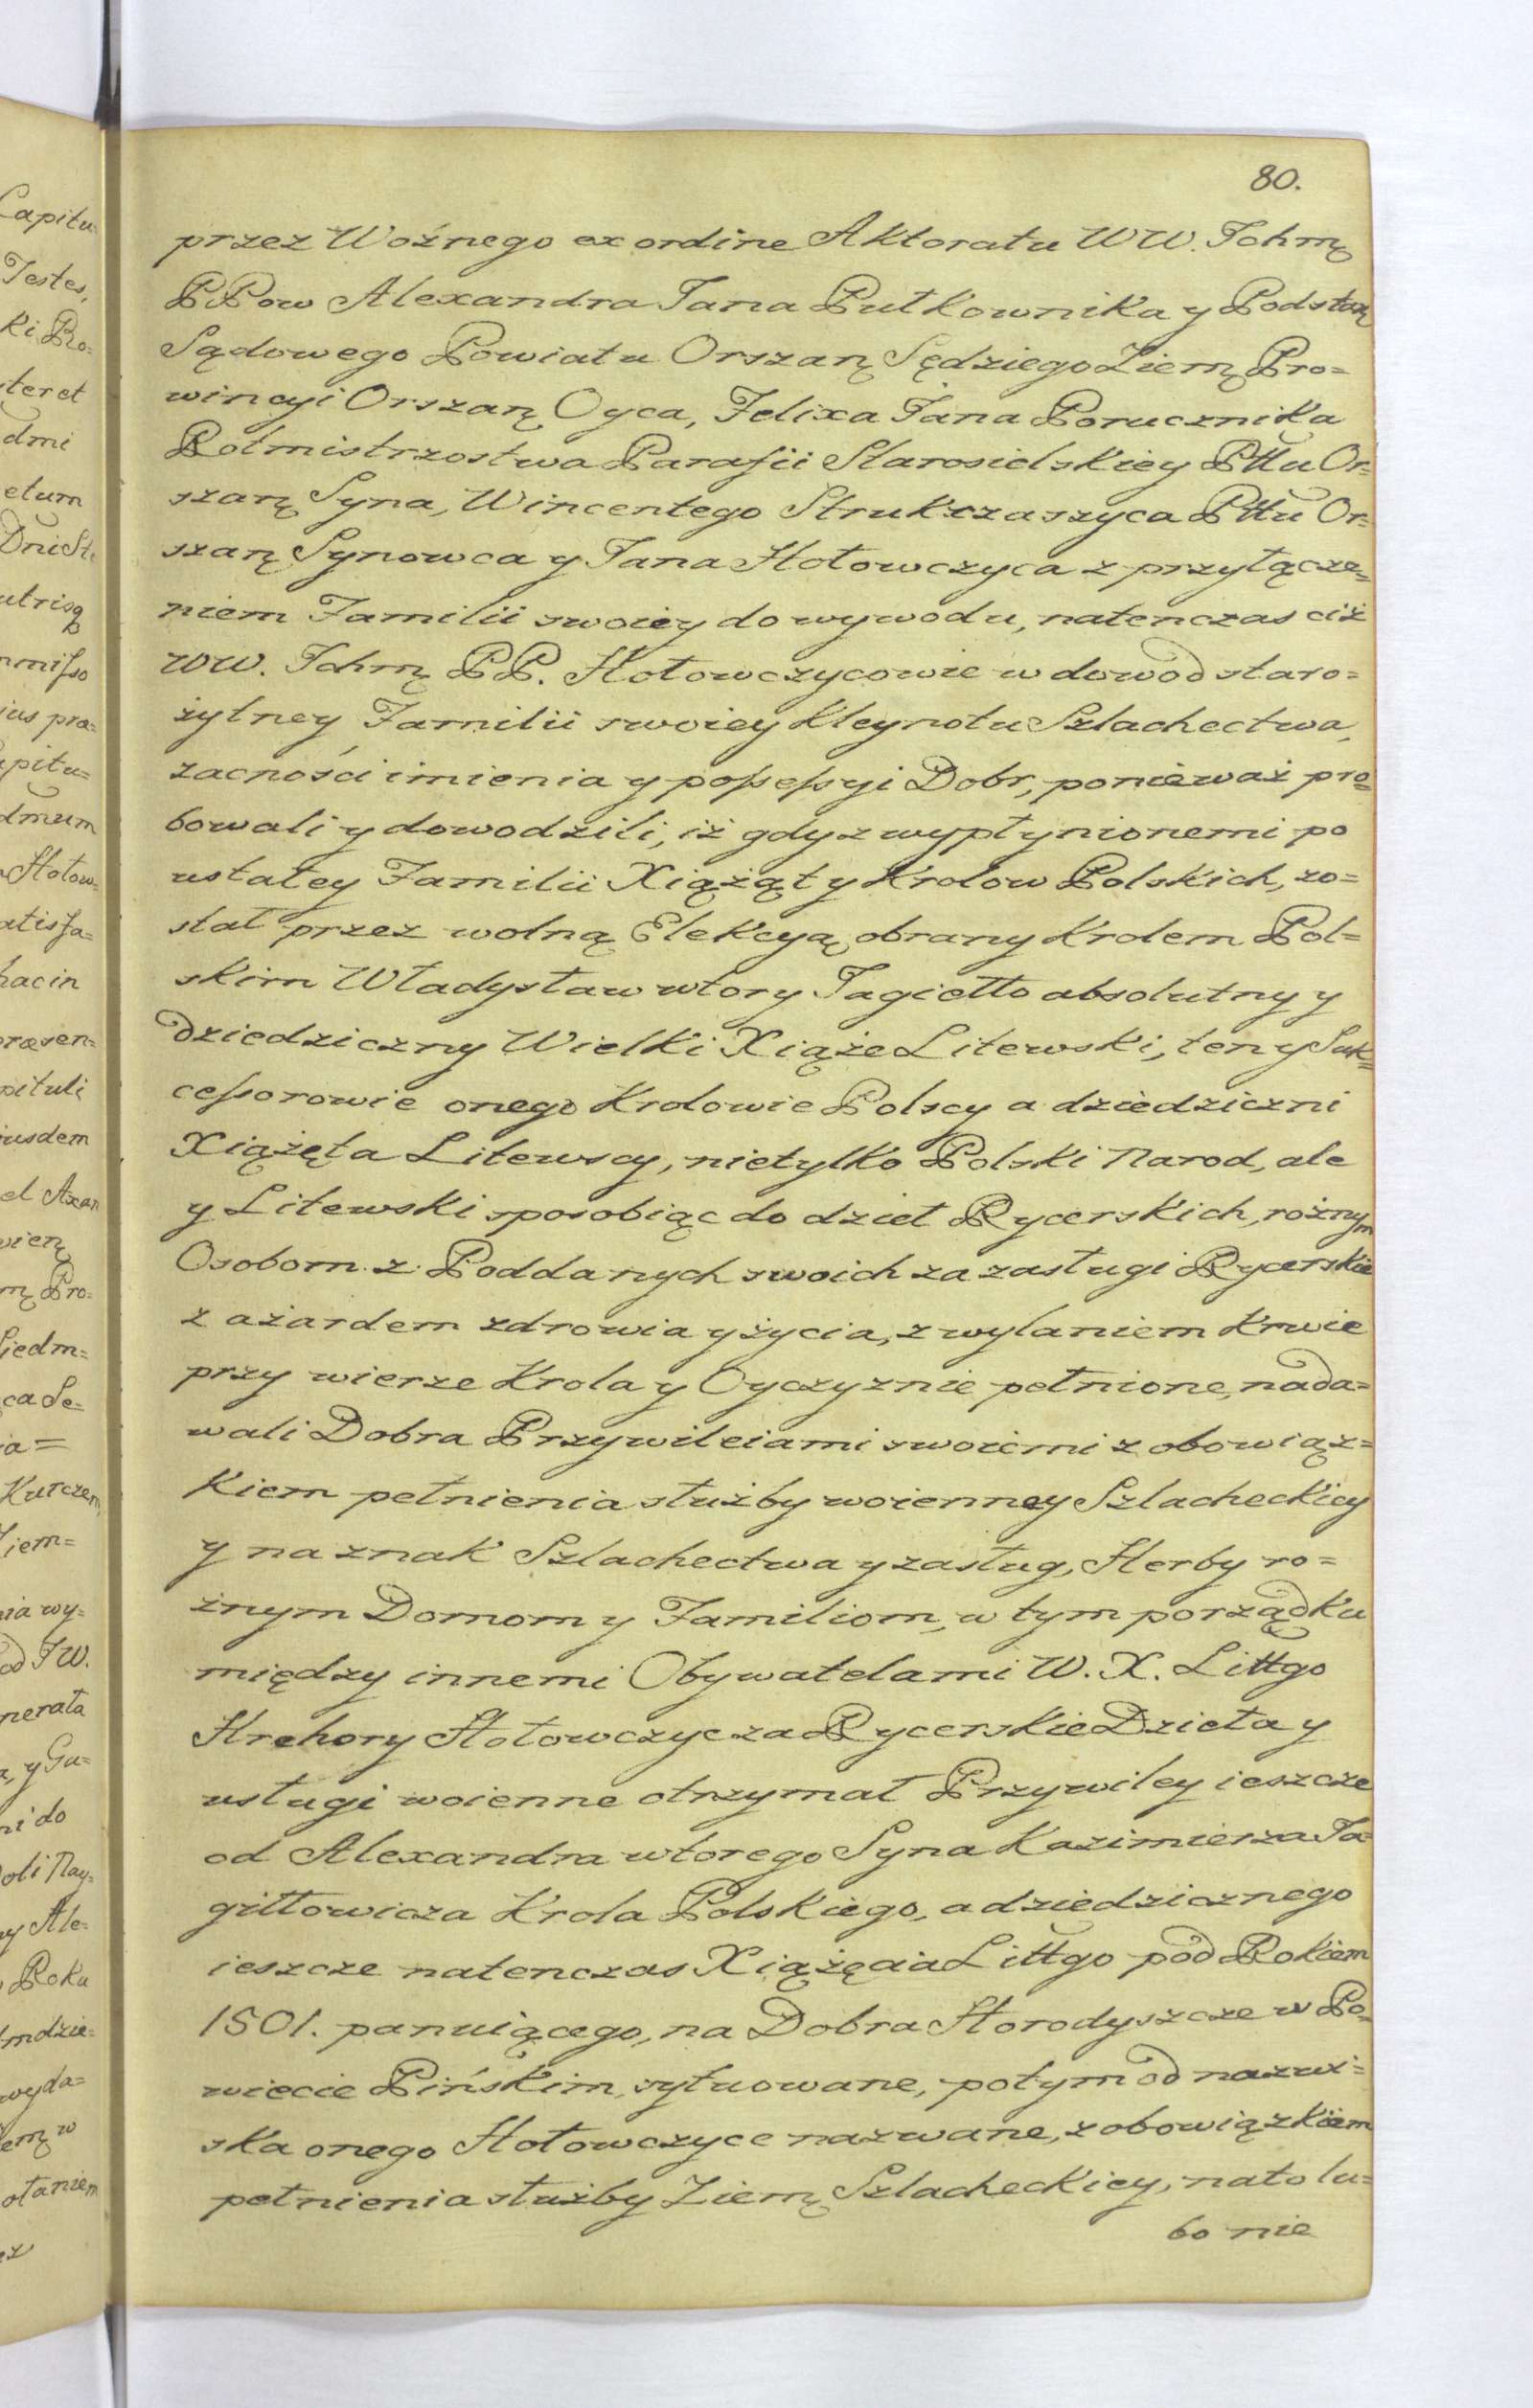 80.
przez Woźnego ex ordine Aktoratu WW. Ichmę
PPow Alexandra Jana Pułkownika y Podstarę
Sądowego Powiatu Orszanę Sędziego Ziemę Pro=
wincyi Orszanę Oyca, Felixa Jana Porucznika
Rotmistrzostwa Parafii Starosielskiey Pttu Or=
szanę Syna, Wincentego Strukczaszyca Pttu Or=
szanę Synowca y Jana Hołowczyca z przyłącze=
niem Familii swoiey do wywodu, natenczas ciż
WW. Ichmę PP. Hołowczycowie w dowod staro=
żytney Familii swoiey Kleynotu Szlachectwa,
zacności imienia y possessyi Dobr, ponieważ pro=
bowali y dowodzili, iż gdy z wypłynionemi po
ustałey Familii Xiążąt y Krolow Polskich, zo=
stał przez wolną Elekcyą obrany Krolem Pol=
skim Władysław wtory Jagiełło absolutny y
dziedziczny Wielki Xiąże Litewski, ten y Suk=
cessorowie onego Krolowie Polscy a dziedziczni
Xiążęta Litewscy, nietylko Polski Narod, ale
y Litewski sposobiąc do dzieł Rycerskich, rożnym
Osobom z Poddanych swoich za zasługi Rycerskie
z ażardem zdrowia y życia, z wylaniem Krwie
przy wierze Krola y Oyczyznie pełnione, nada=
wali Dobra Przywileiami swoiemi z obowiąz=
kiem pełnienia służby woienney Szlacheckiey
y na znak Szlachectwa y zasług, Herby ro=
żnym Domom y Familiom, w tym porządku
między innemi Obywatelami W. X. Littgo
Hrehory Hołowczyc za Rycerskie Dzieła y
usługi woienne otrzymał Przywiley ieszcze
od Alexandra wtorego Syna Kazimierza Ja=
giłłowicza Krola Polskiego, a dziedzicznego
ieszcze natenczas Xiążęcia Littgo pod Rokiem
1501. panuiącego, na Dobra Horodyszcze w Po=
wiecie Pińskim, sytuowane, potym od nazwi=
ska onego Hołowczyce nazwane, z obowiązkiem
pełnienia służby Ziemę Szlacheckiey, na to lu=
bo nie